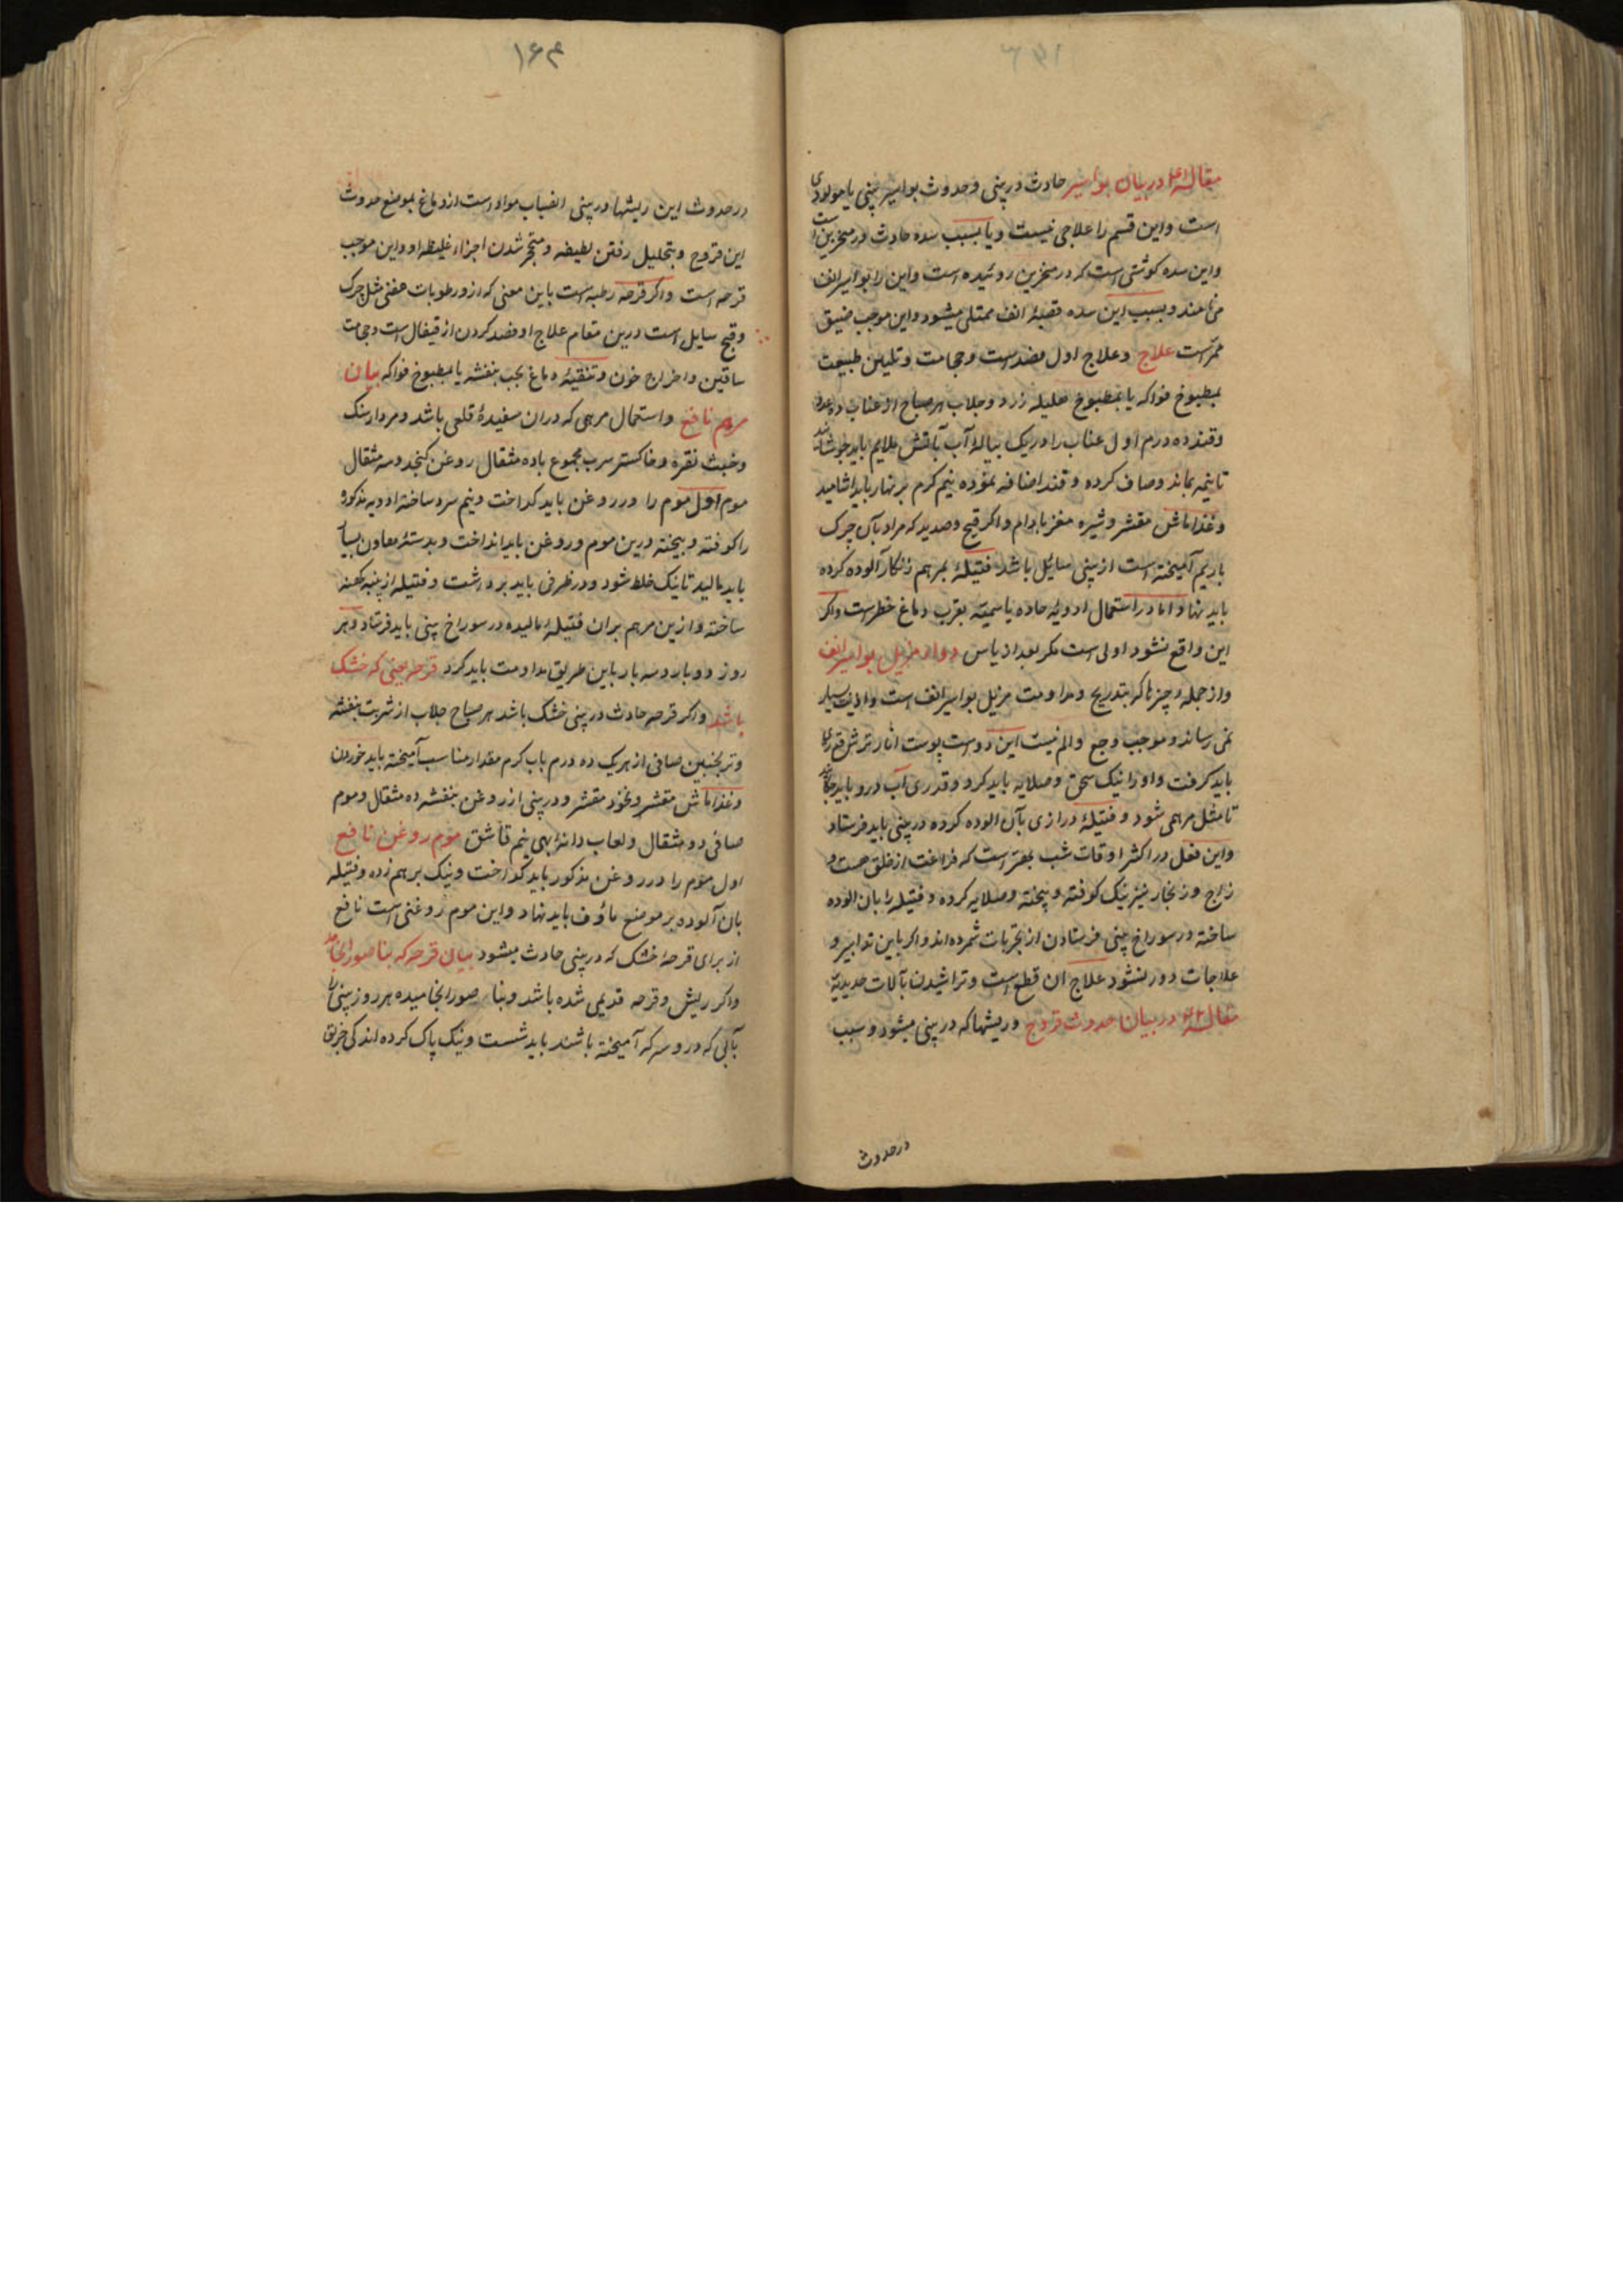 مقالهٔ در بیان بواسیر حادث در بینی و حدوث بواسیر بینی یا مولودی
است و این قسم را علاجی نیست و یا بسبب سده حادث در منخرین است
و این سده کوشتی است که در منخرین روئیده است و این را بواسیر الانف
می نامند و بسبب این سده قصبهٔ انف ممتلی میشود و این موجب ضیق
ممر است علاج و علاج اول فصد است و حجامت و تلیین طبیعت
بمطبوخ فواکه یا بمطبوخ هلیله زرد و جلاب هر صباح از عناب ده عدد
و قند ده درم اول عناب را در یک پیالهٔ آب بآتش ملایم باید جوشاند
تا نیمه بماند و صاف کرده و قند اضافه نموده نیم کرم بر نهار باید اشامید
و غذا ماش مقشر و شیره مغز بادام و اکر قیح و صدید که مراد بآن چرک
با ریم آمیخته است از بینی سائیل باشد فتیلهٔ بمرهم زنکار آلوده کرده
باید نهاد اما در استعمال ادویه حاده یا سمیته بقرب دماغ خطر است و اکر
این واقع نشود اولی است مکر بعد از یاس دواء مزیل بواسیر انف
و از جمله چیزها که بتدریج و مداومت مزیل بواسیر انف است و اذیت بسیار
نمی رساند و موجب وجع و الم نیست این دو است پوست انار ترش قدری
باید کرفت و او را نیک سحق و صلایه باید کرد و قدری آب درو باید
تا مثل مرهمی شود و فتیلهٔ درازی بآن الوده کرده در بینی باید فرستاد
و این فعل در اکثر اوقات شب بهتر است که فراغت از خلق هست و
زاج و زنجار نیز نیک کوفته و بیخته و صلایه کرده و فتیله را بان الوده
ساخته در سوراخ بینی فرستادن از مجربات شمرده اند و اکر باین تدابیر و
علاجات دور نشود علاج ان قطع است و تراشیدن بآلات حدیدیة
مقالهٔ در بیان حدوث قروح و ریشها که در بینی میشود و سبب
در حدوث
۱۶۴
در حدوث این ریشها در بینی انصباب مواد است از دماغ بموضع حدوث
این قروح و بتحلیل رفتن لطیفه و متحجر شدن اجزاء غلیظه او و این موجب
قرحه است و اکر قرحه رطبه است باین معنی که ازو رطوبات عفنی مثل چرک
و قیح سایل است درین مقام علاج او فصد کردن از قیفال است و حجامت
ساقین و اخراج خون و تنقیهٔ دماغ بحب بنفشه یا بمطبوخ فواکه بیان
مرهم نافع و استعمال مرهمی که دران سفیدهٔ قلعی باشد و مردارسنک
و خبث نقره و خاکستر سرب مجموع با ده مثقال روغن کنجد و سه مثقال
موم اول موم را در روغن باید کداخت و نیم سرد ساخته ادویه مذکوره
را کوفته و بیخته درین موم و روغن باید انداخت و بدستهٔ معاون بسیار
باید مالید تا نیک خلط شود و در ظرفی باید برداشت و فتیله از پنبه کهنه
ساخته و ازین مرهم بران فتیله مالیده در سوراخ بینی باید فرستاد و هر
روز دو بار و سه بار باین طریق مداومت باید کرد قرحه بینی که خشک
باشد و اکر قرحه حادث در بینی خشک باشد هر صباح جلاب از شربت بنفشه
و ترنجبین صافی از هر یک ده درم باب کرم مقدار مناسب آمیخته باید خوردن
و غذا ماش مقشر و نخود مقشر و در بینی از روغن بنفشه ده مثقال و موم
صافی دو مثقال و لعاب دانهٔ بهی نیم قاشق موم روغن نافع
اول موم را در روغن مذکور باید کداخت و نیک بر هم زده و فتیله
بان آلوده بر موضع ماؤف باید نهاد و این موم روغنی است نافع
از برای قرحهٔ خشک که در بینی حادث میشود بیان قرحه که بناصور انجامد
و اکر ریش و قرحه قدیمی شده باشد و بناصور انجامیده هر روز بینی را
بآبی که درو سرکه آمیخته باشند باید شست و نیک پاک کرده اندکی خربق